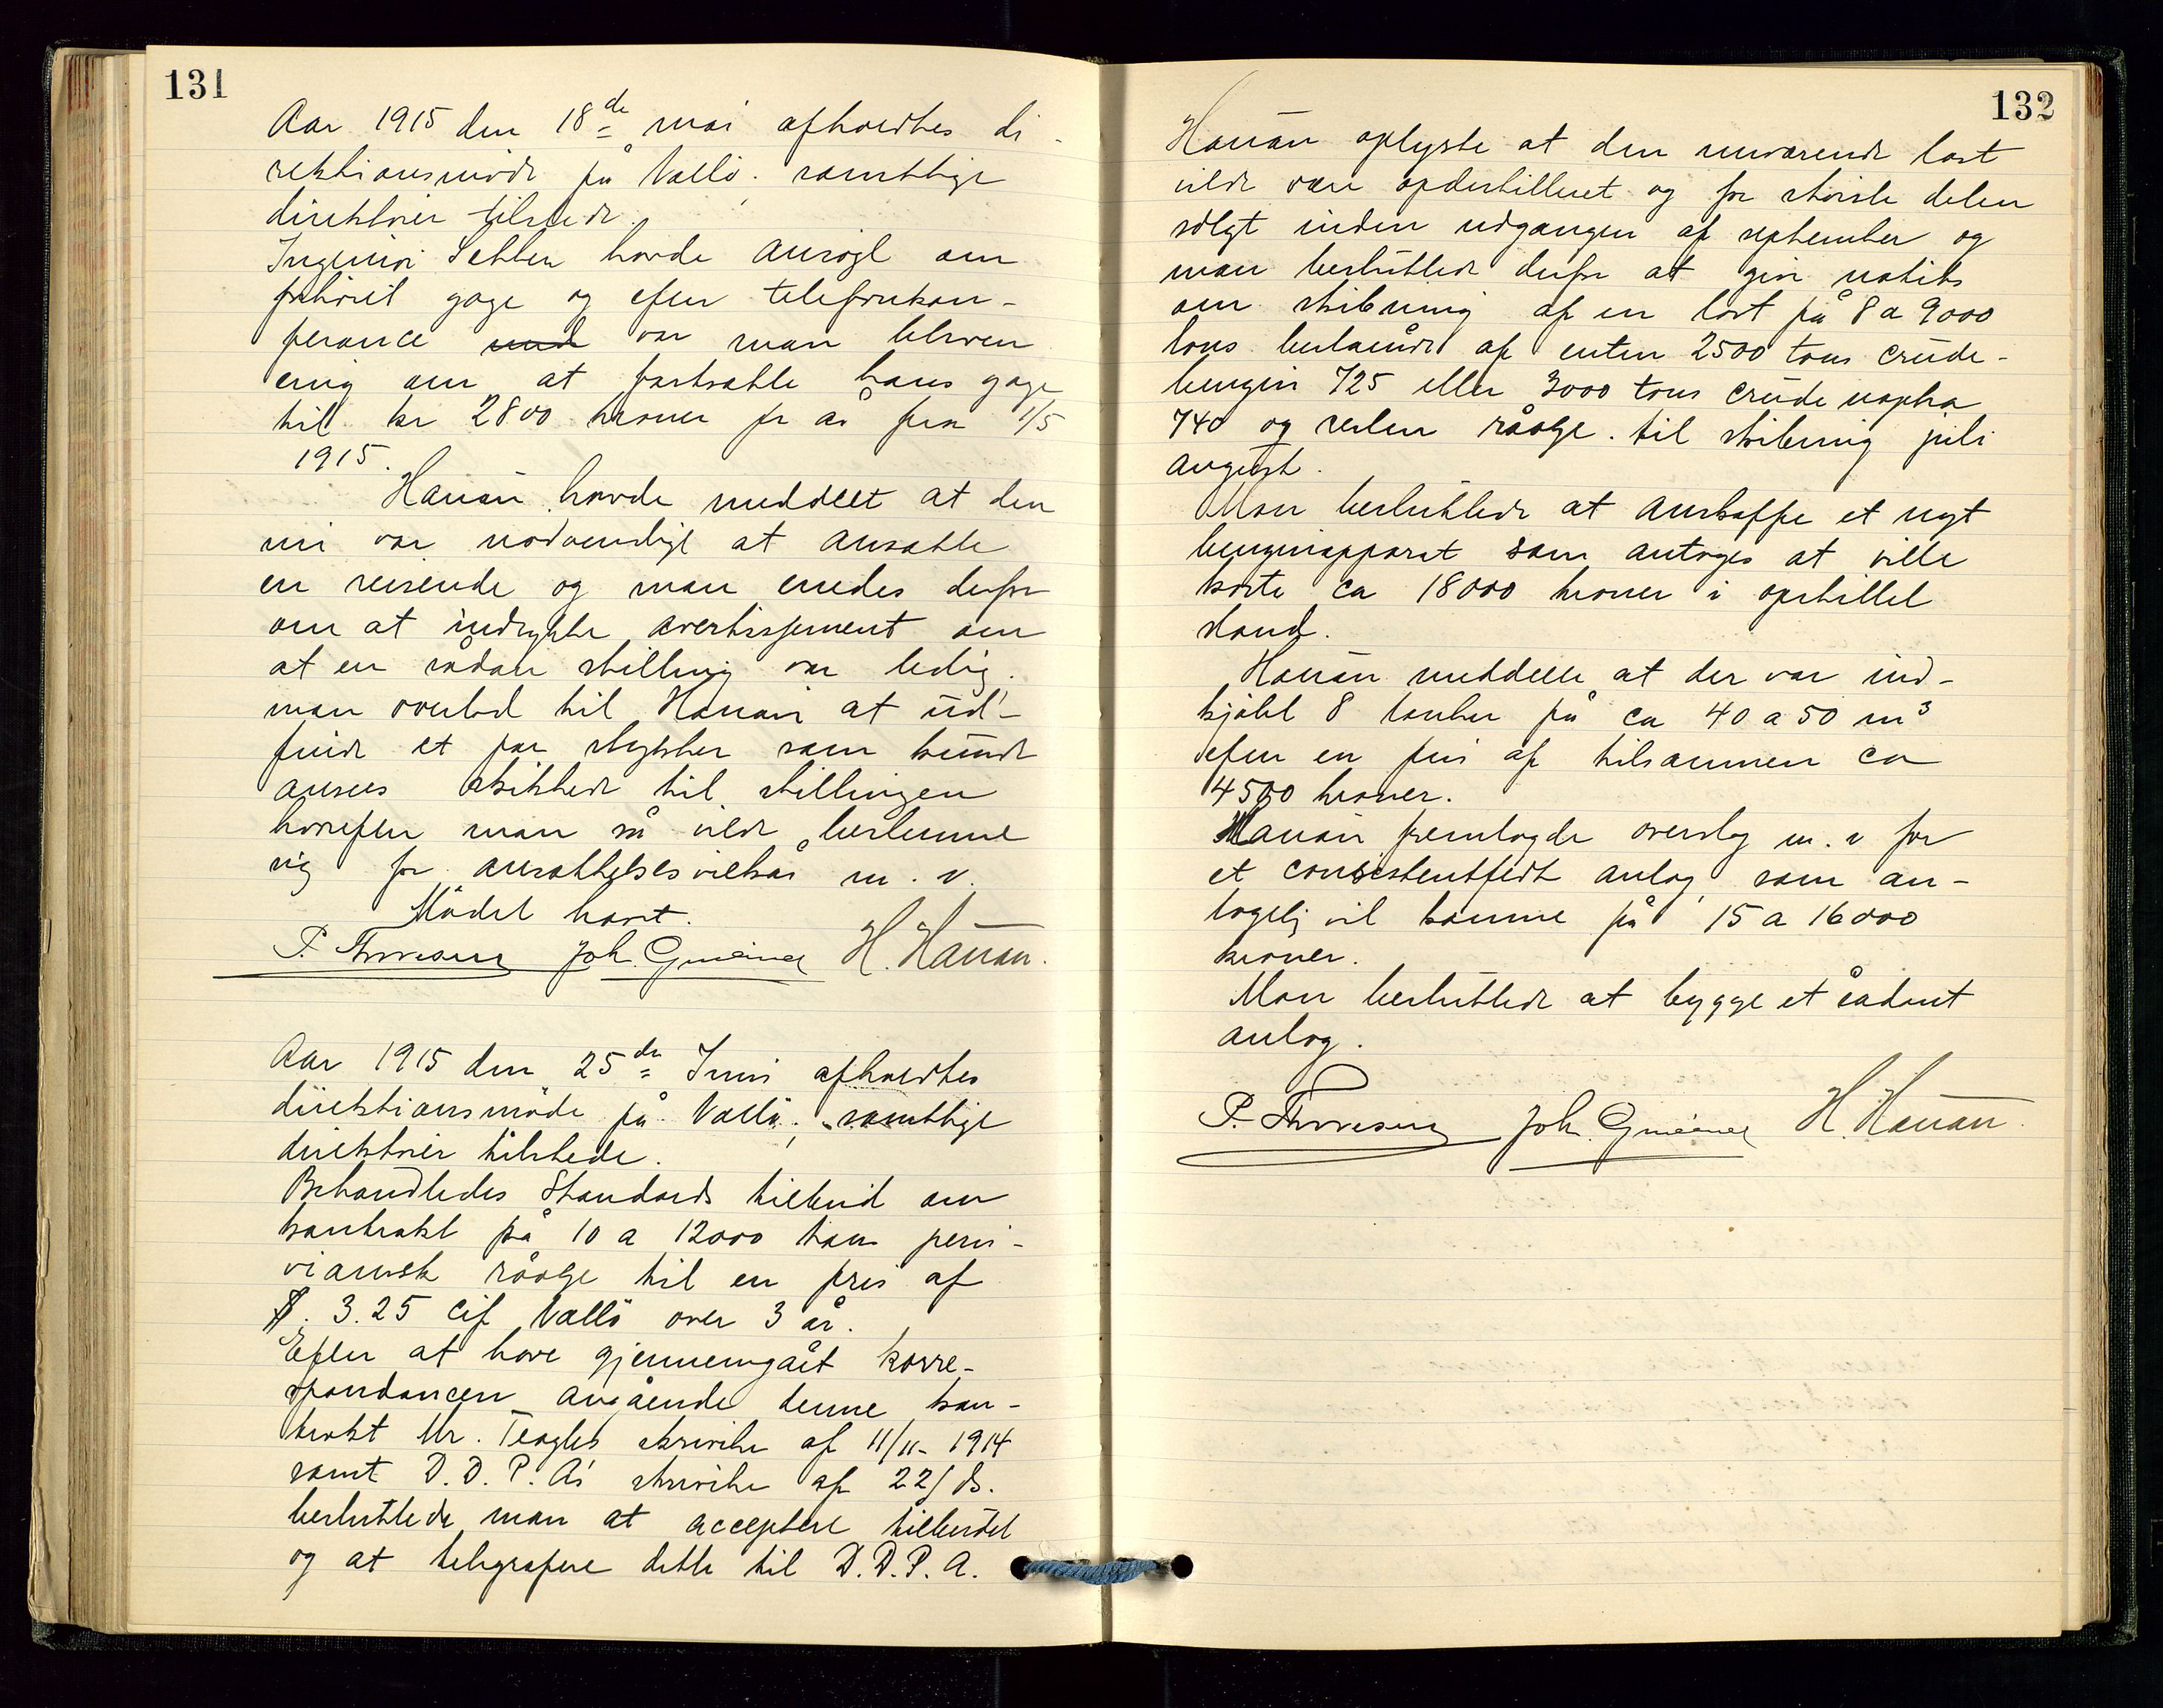 131
Aar 1915 den 18de mai afholdtes di-
rektionsmöde på Vallö. samtlige
direktörer tilstede.
Ingeniör Sebben havde ansögt om
forhöiet gage og efter telefonkon-
ferance med var man bleven
enig om at fastsætte hans gage
til kr 2800 kroner pr år fra 1/5
1915.
Hanån havde meddelt at den
nu var nödvendigt at ansætte
en reisende og man enedes derfor
om at indrykke avertissement om
at en sådan stilling var ledig.
man overlod til Hanån at ud-
finde et par stykker som kunde
ansees skikkede til stillingen
hvorefter man så vilde bestemme
sig for ansættelsesvilkår m.v.
Mödet hævt.
P. Thoresen Joh. H. Hanån.
Aar 1915 den 25de Juni afholdtes
direktionsmöde på Vallö; samtlige
direktörer tilstede.
Behandledes Standards tilbud om
kontrakt på 10 a 12000 tons peru-
viansk råolje til en pris af
$. 3.25 cif Vallö over 3 år.
Efter at have gjennemgået korre-
spondancen angående denne kon-
trakt Mr. Teagles skrivelse af 11/11-1914
samt D.D.P.A's skrivelse af 22/ds.
besluttede man at acceptere tilbudet
og at telegrafere dette til D.D.P.A.
132
Hanån oplyste at den nuværende last
vilde være opdestilleret og for störste delen
solgt inden udgangen af september og
man besluttede derfor at give notits
om skibning af en last på 8 a 9000
tons bestående af enten 2500 tons crude-
benzin 725 eller 3000 tons crude naptha
740 og resten råolje. til skibning juli
august.
Man besluttede at anskaffe et nyt
benzinapparat som antages at ville
koste ca 18000 kroner i opstillet
stand.
Hanån meddelte at der var ind-
kjöbt 8 tanker på ca 40 a 50 m3
efter en pris af tilsammen ca
4500 kroner.
Hanån fremlagde overslag m.v for
et consistentfedt anlæg, som an-
tagelig vil komme på 15 a 16000
kroner.
Man besluttede at bygge et sådant
anlæg.
P. Thoresen Joh. H. Hanån.